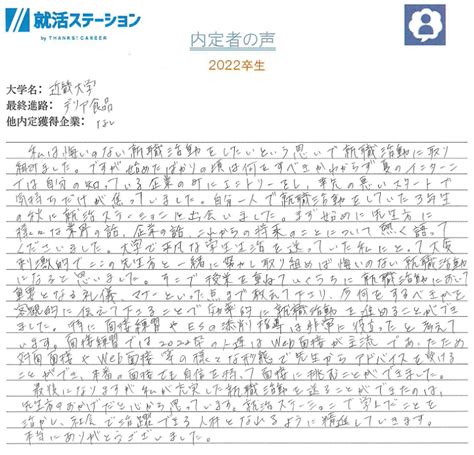 就活ステーション
by THANKS! CAREER
内定者の声
2022卒生
大学名：近畿大学
最終進路：デリア食品
他内定獲得企業：なし
私は悔いのない就職活動をしたいという思いで就職活動に取り
組みました。ですが始めたばかりの頃は何をすべきかわからず夏のインターン
では自分の知っている企業のみにエントリーをし、出先の悪いスタートで
気持ちだけが焦っていました。自分一人で就職活動をしていた3年生
の秋に就活ステーションと出会いました。まず始めに先生方に
様々な業界の話、企業の話、これからの将来のことについて熱く語って
くださいました。大学で平凡な学生生活を送っていた私にとって大変
刺激的でここの先生方と一緒に努力し取り組めば悔いのない就職活動
になると思いました。そこで授業を重ねていくうちに就職活動において
重要となる礼儀、マナーといった点まで教えて下さり、今何をすべきかを
客観的に伝えて下さることで効率的に就職活動を進めることができ
ました。特に面接練習やESの添削指導は非常に役立ったと考えて
います。面接練習では2022卒の人達はWeb面接が主流であったため
対面面接やWeb面接等の様々な形態で先生からアドバイスを受ける
ことができ、本番の面接でも自信を持って面接に挑むことができました。
最後になりますが私が充実した就職活動を送ることができたのは、
先生方のおかげだと心から思っています。就活ステーションで学んだことを
活かし、社会で活躍できる人材となれるように精進していきます。
本当にありがとうございました。